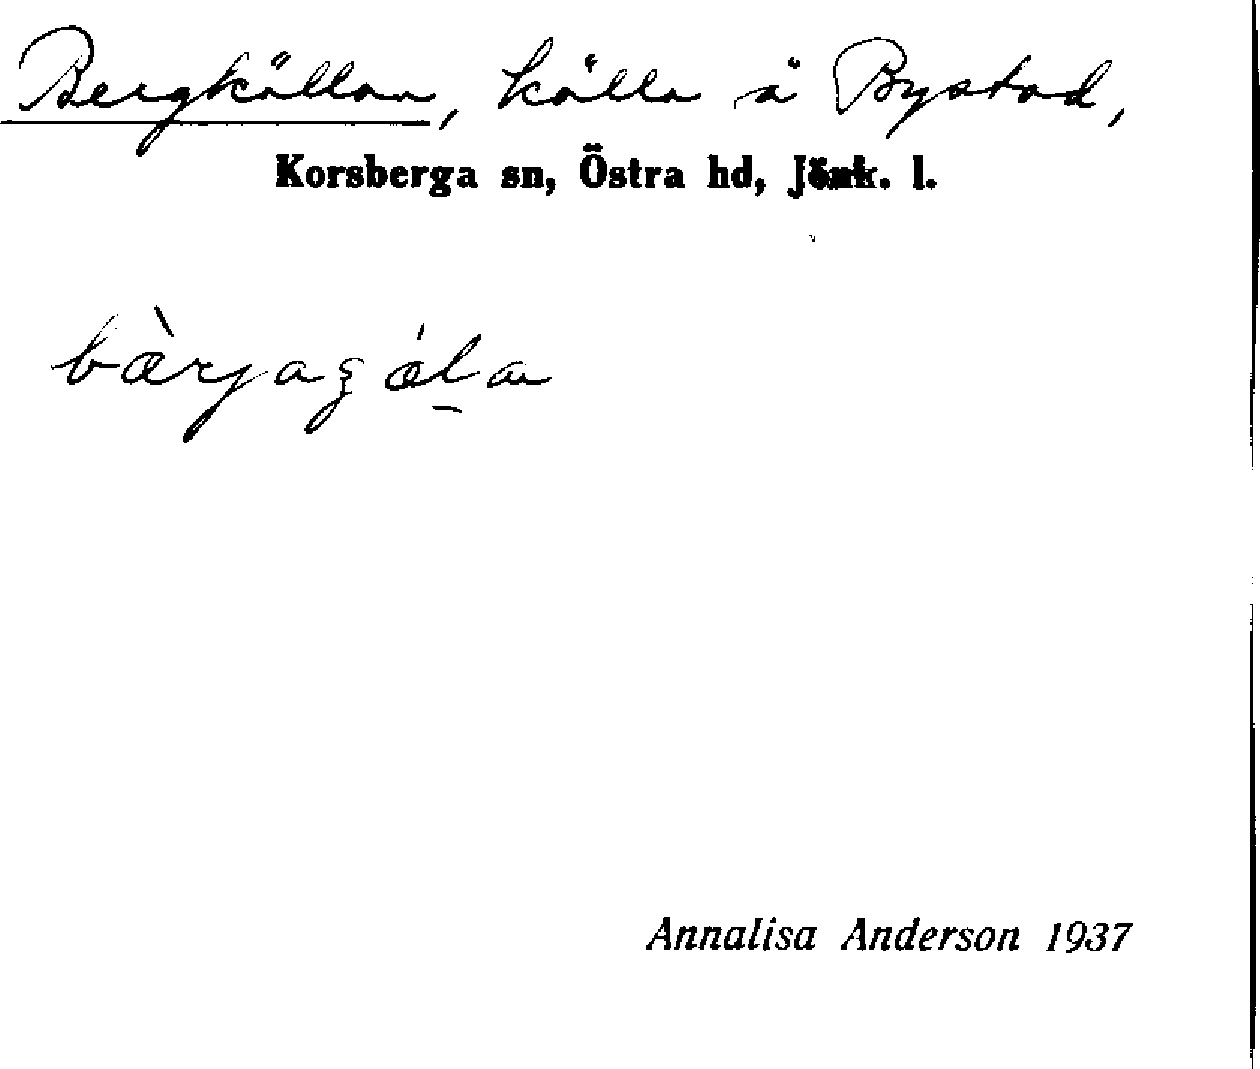 Bergkällan, källa å Bystad,
Korsberga sn, Östra hd, Jönk. l.
bæ̀rjaʒǽl̲a
Annalisa Anderson 1937